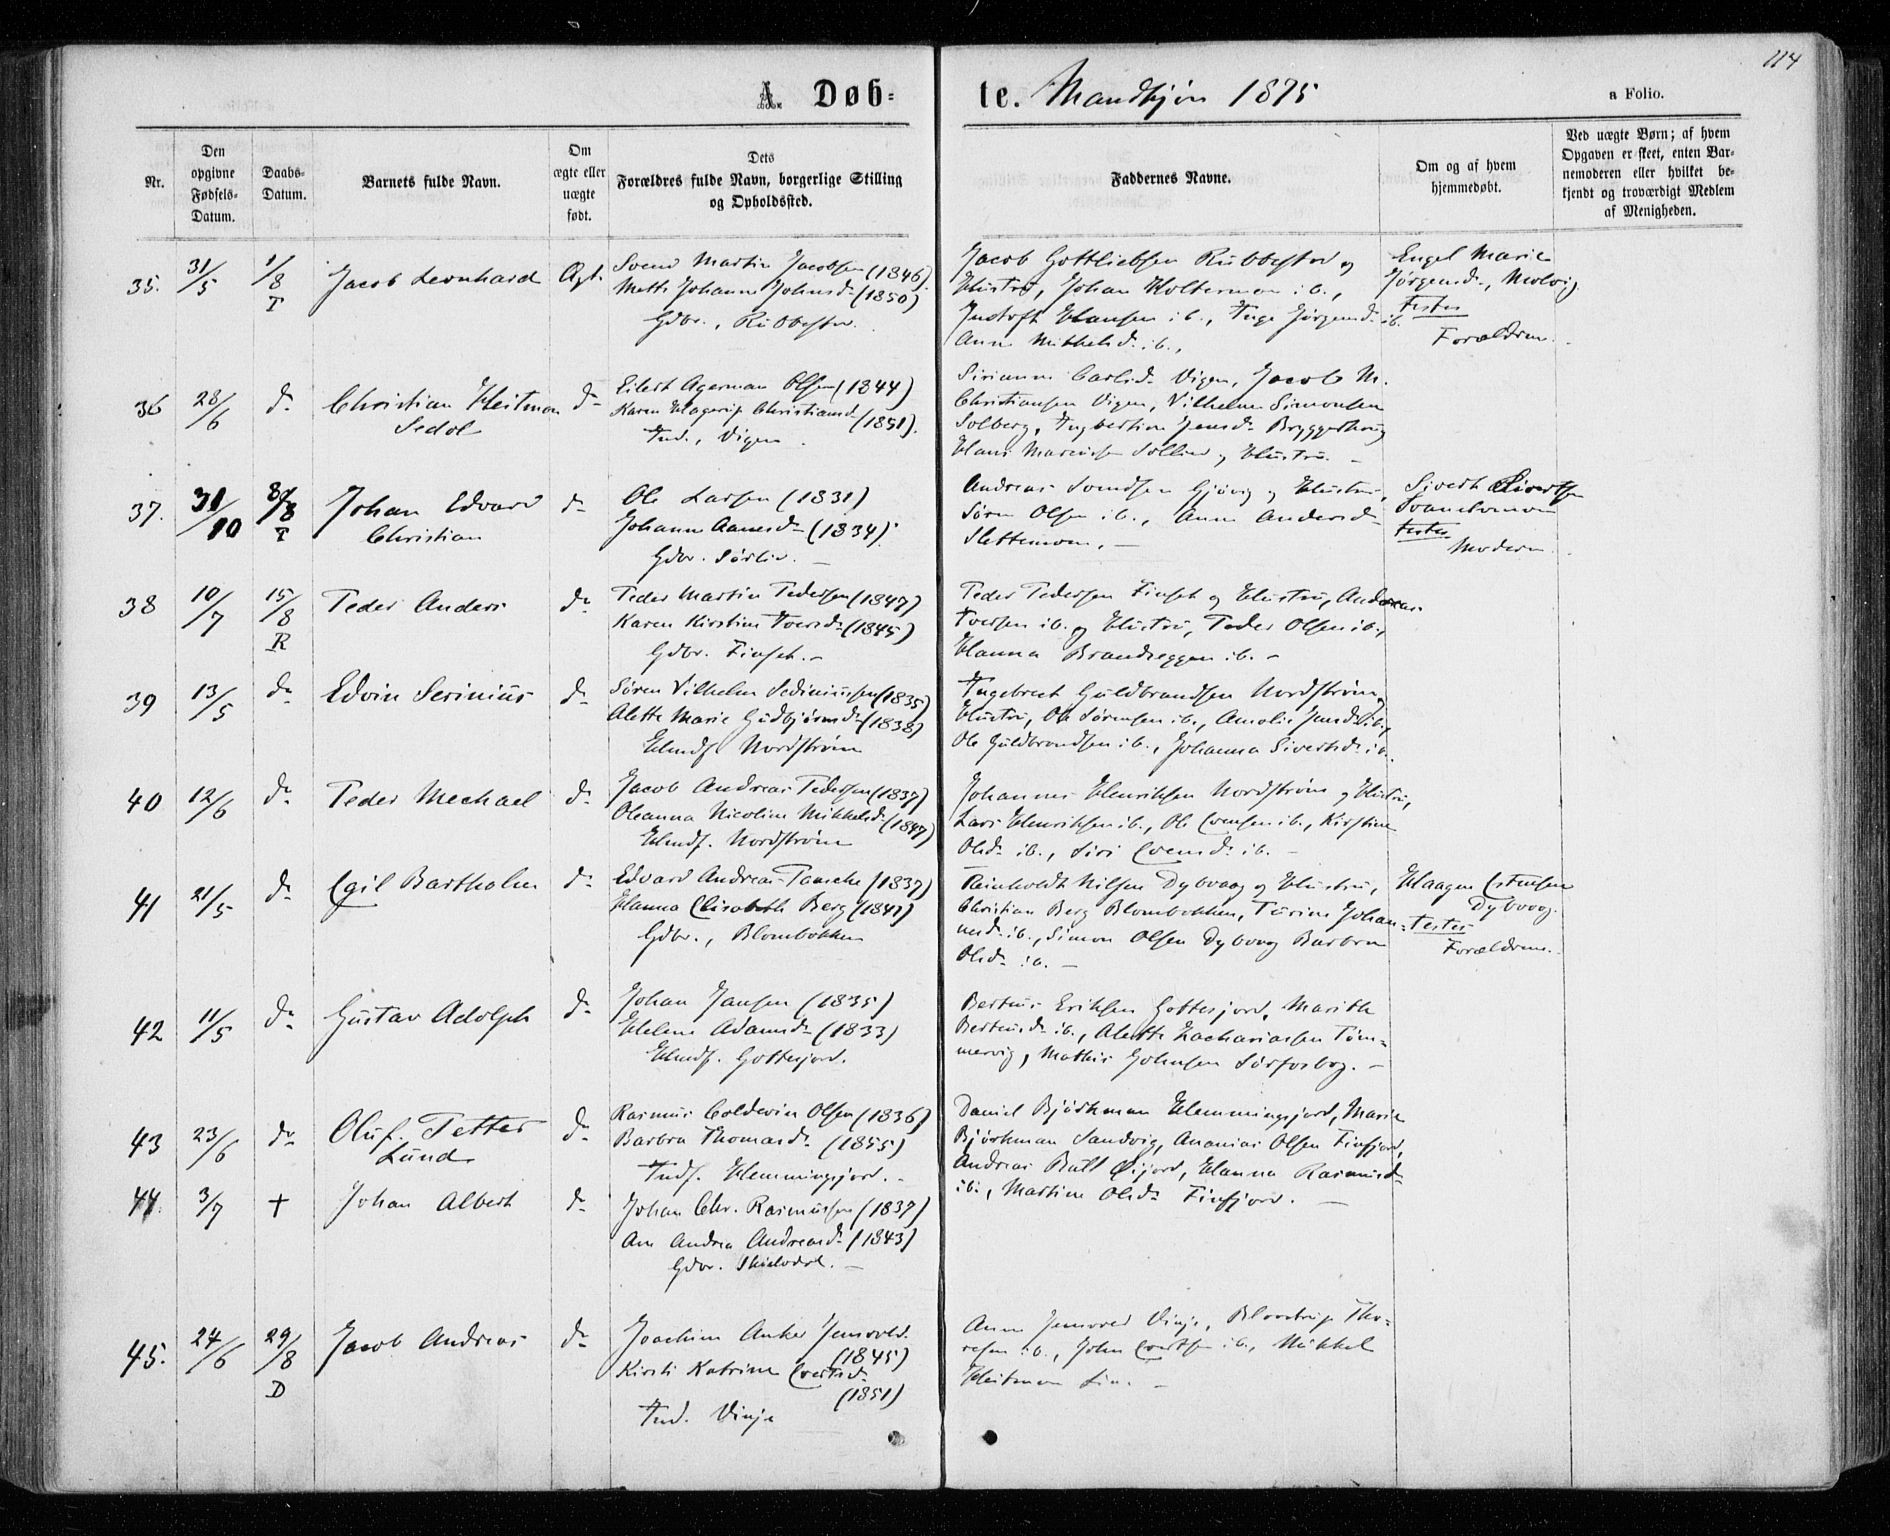 114
A. Døb-
te. Mandkjøn 1875
a Folio.
Nr.
Den
opgivne
Fødsels-
Datum.
Daabs-
Datum.
Barnets fulde Navn.
Om
ægte eller
uægte
født.
Dets
Forældres fulde Navn, borgerlige Stilling
og Opholdssted.
Faddernes Navne.
Om og af hvem
hjemmedøbt.
Ved uægte Børn; af hvem
Opgaven er skeet, enten Bar-
nemoderen eller hvilket be-
kjendt og troværdigt Medlem
af Menigheden.
35. 31/5 1/8 T Jacob Leonhard Ægt.
Svend Martin Jacobsen (1846)
Mette Johanna Johnsd. (1850)
Gdbr., Rubbestad.
Jacob Gottliebsen Rubbestad og
Hustru, Johan Holterman ib.,
Justoft Hansen ib., Inge Jørgensd. ib.
Anna Mikkelsd. ib.,
Engel Marie
Jørgensd., Molvig
Testes
Forældrene.
36 28/6 do Christian Heitman do
Sedol
Eilert Agerman Olsen (1844)
Karen Hagerup Christiansd. (1851).
Ind., Vigen.
Sirianna Carlsd. Vigen, Jacob M.
Christiansen Vigen, Vilhelm Simonsen
Solberg, Ingbertine Jensd. Bryggerhaug
Hans Marcussen Sollied og Hustru. -
37. 31/10 8/8 T Johan Edvard do
Christian
Ole Larsen (1831)
Johanna Aanesd. (1834).
Gdbr. Sørlid. -
Andreas Svendsen Gjøvig og Hustru,
Søren Olsen ib., Anna Andersd.
Slettemoen. -
Sivert Sivertsen
Svanelvmoen
Testes
Moderen.
38 10/7 15/8 R Peder Anders do
Peder Martin Pedersen (1847)
Karen Kirstine Iversd. (1845)
Gdbr. Finset. -
Peder Pedersen Finset og Hustru, Andreas
Iversen ib. og Hustru, Peder Olsen ib.,
Hanna Brandseggen ib. -
39 13/5 do Edvin Serinius do
Søren Vilhelm Sediniussen (1835)
Alette Marie Gudbjørnsd. (1838)
Hmdf. Nordstrøm
Ingebret Guldbrandsen Nordstrøm og
Hustru, Ole Sørensen ib., Amalie Jensd. ib.,
Ole Guldbrandsen ib., Johanna Sivertsd. ib.
40 12/6 do Peder Mechael do
Jacob Andreas Pedersen (1837)
Oleanna Nicoline Mikkelsd. (1847)
Hmdf. Nordstrøm
Johannes Henriksen Nordstrøm og Hustru,
Lars Henriksen ib., Ole Evensen ib., Kirstine
Olsd. ib., Siri Evensd. ib. -
41 21/5 do Egil Bartholin do
Edvard Andreas Paasche (1837)
Hanna Elisabeth Berg (1841)
Gdbr., Blombakken
Reinholdt Nilsen Dybvaag og Hustru,
Christian Berg Blombakken, Turine Johan-
nesd. ib., Simon Olsen Dybvaag Barbra
Olsd. ib. -
Haagen Estensen
Dybvaag.
Testes
Forældrene.
42 11/5 do Gustav Adolph do
Johan Jansen (1835)
Helene Adamsd. (1833)
Hmdf. Gottesjord.
Berteus Eriksen Gottesjord, Marith
Berteusd. ib., Alette Zachariassen Tøm-
mervig, Mathis Johnsen Sørfosbog. -
43 23/6 do Oluf Petter do
Lund
Rasmus Coldevin Olsen (1836)
Barbra Thomasd. (1855)
Indf. Hemmingsjord. -
Daniel Bjørkman Hemmingsjord, Marie
Bjørkman Sandvig, Ananias Olsen Finfjord,
Andreas Bull Øijord, Hanna Rasmusd.
ib., Martine Olsd. Finfjord. -
44. 3/7 + Johan Albert do
Johan Chr. Rasmussen (1837)
Ane Andrea Andreasd. (1843)
Gdbr. Skielvdal. -
45. 24/6 29/8 D Jacob Andreas do
Joachim Anker Jensvold
(1845)
Kirsti Katrine Evertsd.
(1851)
Ind. Vinje
Anna Jensvold Vinje, Bloostrup Tho-
resen ib., John Evertsen ib., Mikkel
Heitman Lia. -